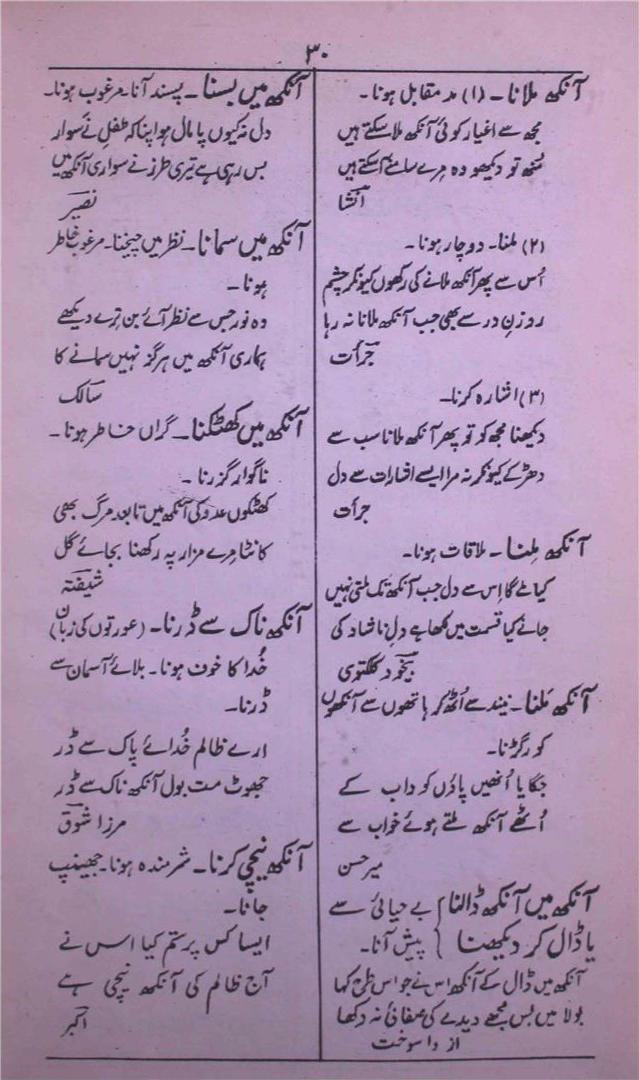 ۳۰
آنکھ ملانا۔ (۱) مد مقابل ہونا۔
مجھ سے اغیار کوئی آنکھ ملا سکتے ہیں
منھ تو دیکھو وہ مرے سامنے آ سکتے ہیں
انشا
(۲) ملنا۔ دوچار ہونا۔
اُس سے پھر آنکھ ملانے کی رکھوں کیونکر چشم
روزنِ در سے بھی جب آنکھ ملانا نہ رہا
جرأت
(۳) اشارہ کرنا۔
دیکھنا مجھ کو تو پھر آنکھ ملانا سب سے
دھڑکے کیونکر نہ مرا ایسے اشارات سے دل
جرأت
آنکھ مِلنا۔ ملاقات ہونا۔
کیا ملے گا اِس سے دل جب آنکھ تک ملتی نہیں
جانے کیا قسمت میں لکھا ہے دلِ ناشاد کی
بیخود کلکتوی
آنکھ مَلنا۔ نیند سے اُٹھ کر ہاتھوں سے آنکھوں
کو رگڑنا۔
جگایا اُنھیں پاؤں کو داب کے
اُٹھے آنکھ ملتے ہوئے خواب سے
میر حسن
آنکھ میں آنکھ ڈالنا } بے حیائی سے
یا ڈال کر دیکھنا } پیش آنا۔
آنکھ میں ڈال کے آنکھ اس نے جو اس طرح کہا
بولا میں بس مجھے دیدے کی صفائی نہ دکھا
از واسوخت
آنکھ میں بسنا۔ پسند آنا۔ مرغوب ہونا۔
دل نہ کیوں پامال ہو اپنا کہ طفلِ نے سوار
بس رہی ہے تیری طرزِ نے سواری آنکھ میں
نصیر
آنکھ میں سمانا۔ نظر میں جچنا۔ مرغوب خاطر
ہونا۔
وہ نور جس سے نظر آئے بن ترے دیکھے
ہماری آنکھ میں ہرگز نہیں سمانے کا
سالک
آنکھ میں کھٹکنا۔ گراں خاطر ہونا۔
ناگوار گزرنا۔
کھٹکوں عدو کی آنکھ میں تا بعد مرگ بھی
کانٹا مرے مزار پہ رکھنا بجائے گل
شیفتہ
آنکھ ناک سے ڈرنا۔ (عورتوں کی زبان)
خُدا کا خوف ہونا۔ بلائے آسمان سے
ڈرنا۔
ارے ظالم خُدائے پاک سے ڈر
جھوٹ مت بول آنکھ ناک سے ڈر
مرزا شوق
آنکھ نیچی کرنا۔ شرمندہ ہونا۔ جھینپ
جانا۔
ایسا کس پر ستم کیا اس نے
آج ظالم کی آنکھ نیچی ہے
اکبر